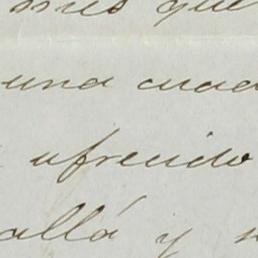 que
una cuad
ofrecido
allá y